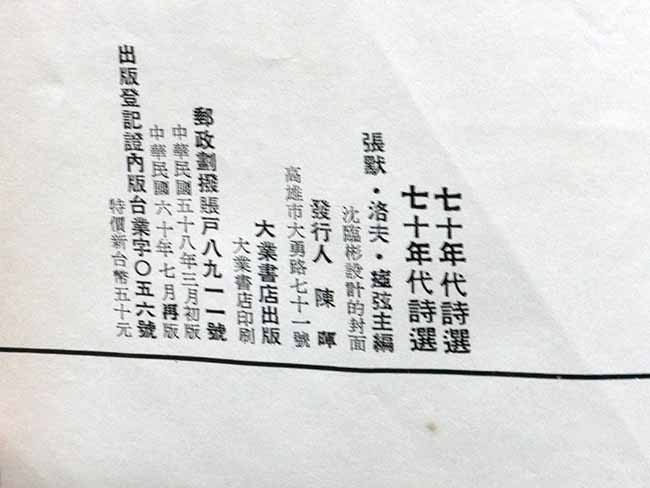 七十年代詩選
七十年代詩選
張默・洛夫・瘂弦主編
沈臨彬設計的封面
發行人 陳暉
高雄市大勇路七十一號
大業書店出版
大業書店印刷
郵政劃撥賬戶八九一一號
中華民國五十八年三月初版
中華民國六十年七月再版
出版登記證內版台業字〇五六號
特價新台幣五十元